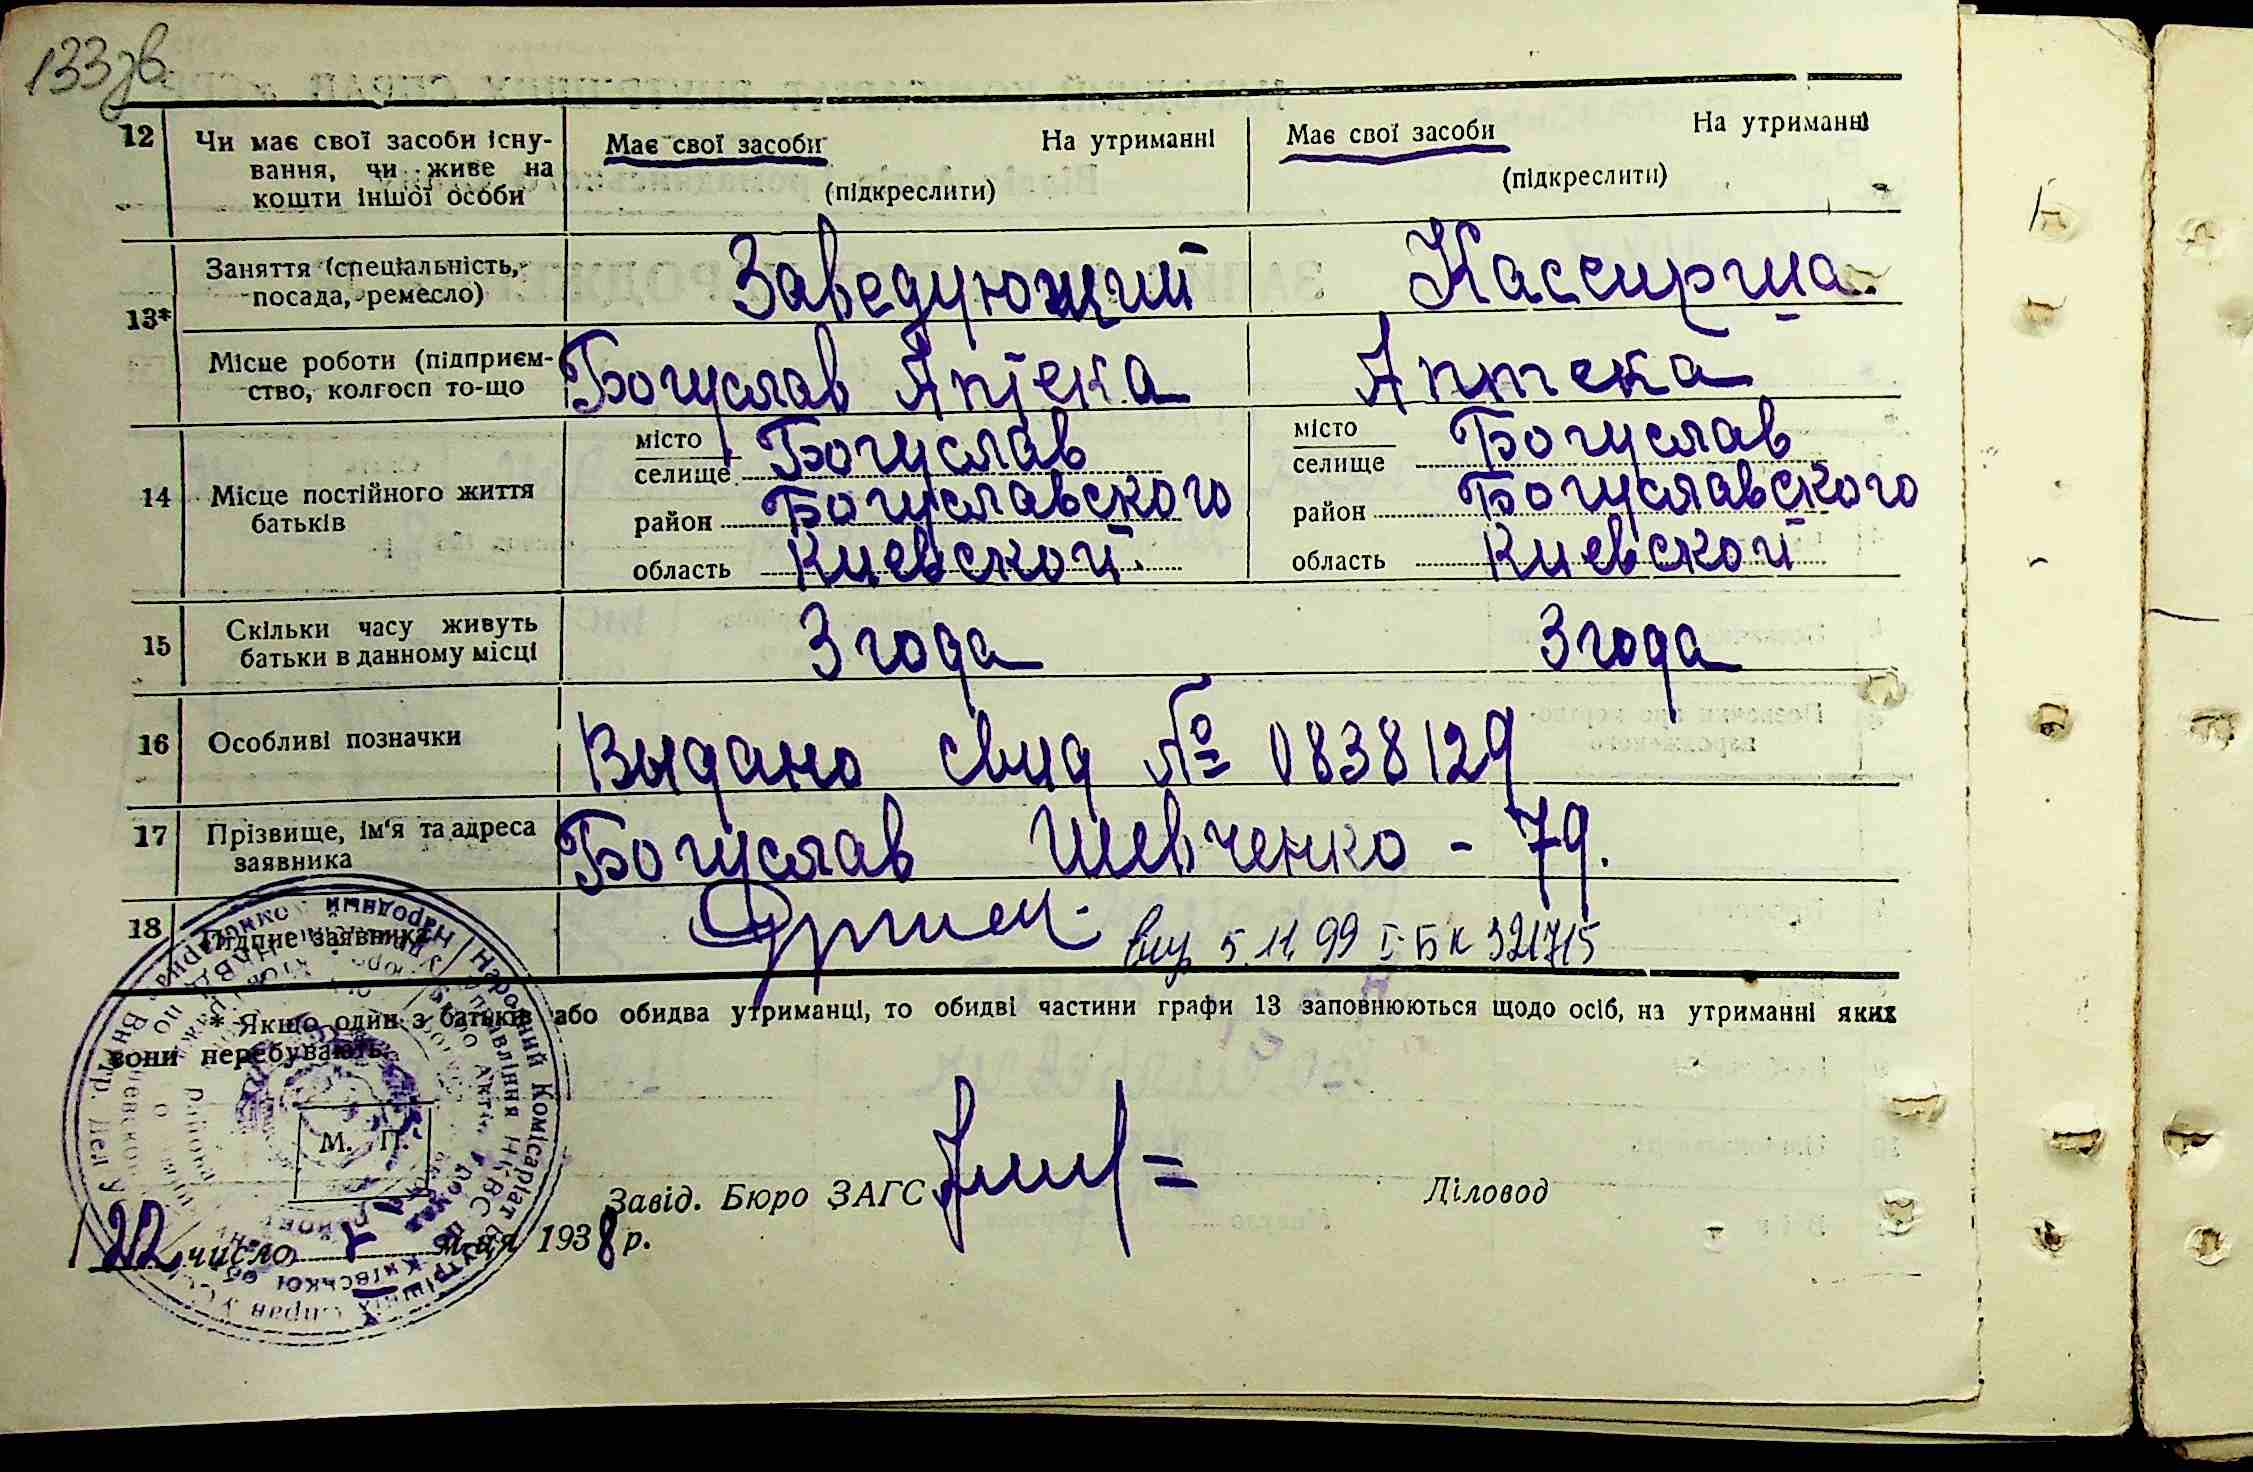 133зв.
12 Чи має свої засоби існу-
вання, чи живе на
кошти іншої особи
Має свої засоби На утриманні
(підкреслити)
Має свої засоби На утриманні
(підкреслити)
13* Заняття (спеціальність,
посада, ремесло)
Заведующий Кассирша
Місце роботи (підприєм-
ство, колгосп то-що
Богуслав Аптека Аптека
14 Місце постійного життя
батьків
місто
селище Богуслав
район Богуславского
область Киевской
місто
селище Богуслав
район Богуславского
область Киевской
15 Скільки часу живуть
батьки в данному місці
3 года 3 года
16 Особливі позначки
Выдано свид № 0838129
17 Прізвище, ім'я та адреса
заявника
Богуслав Шевченко - 79.
18 Підпис заявника
5.11.99 І-БК 321715
* Якщо один з батьків або обидва утриманці, то обидві частини графи 13 заповнюються щодо осіб, на утриманні яких
вони перебувають.
М. П.
Завід. Бюро ЗАГС Діловод
22 число м-ця 1938 р.
Народний Комісаріат Внутрішніх Справ УСРР